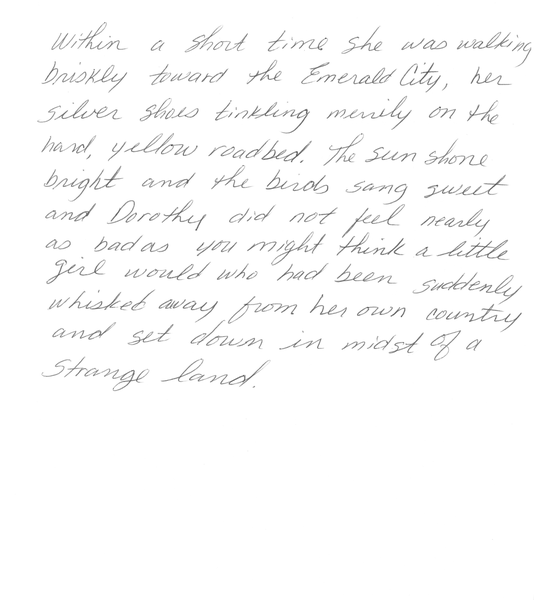 Within a short time she was walking
briskly toward the Emerald City, her
silver shoes tinkling merrily on the
hard, yellow roadbed. The sun shone
bright and the birds sang sweet
and Dorothy did not feel nearly
as bad as you might think a little
girl would who had been suddenly
whisked away from her own country
and set down in midst of a
strange land.